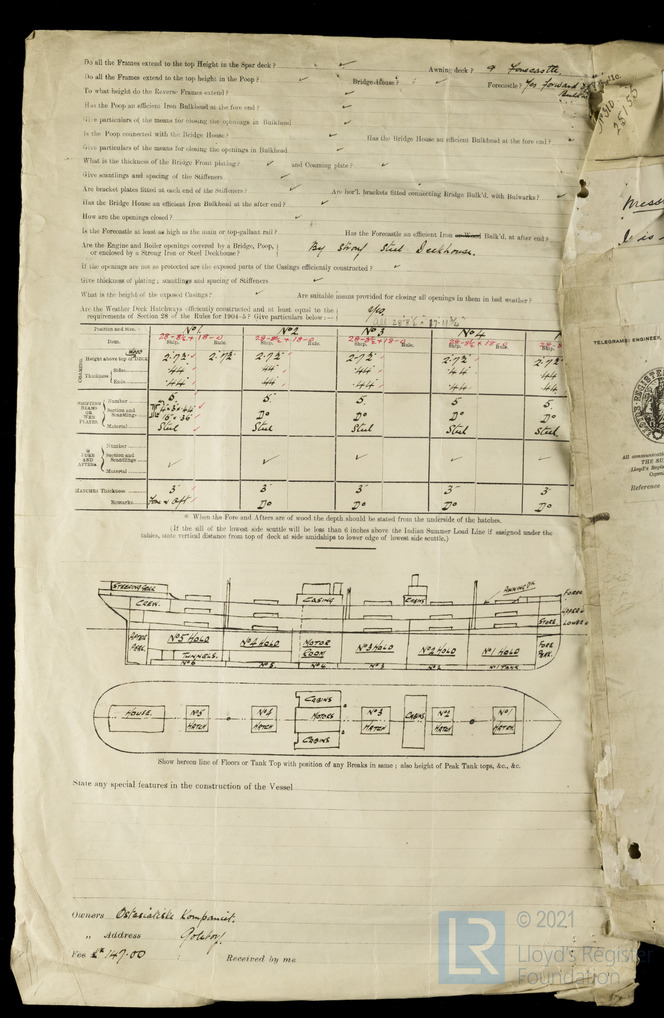 Do all the Frames extend to the top Height in the Spar deck ? ✓ Awning deck ? & Forecastle.
Do all the Frames extend to the top height in the Poop ? ✓ Bridge House ? ✓ Forecastle ? Yes forward
To what height do the Reverse Frames extend ? ✓
Has the Poop an efficient Iron Bulkhead at the fore end ? ✓
Give particulars of the means for closing the openings in Bulkhead ✓
Is the Poop connected with the Bridge House ? ✓ Has the Bridge House an efficient Bulkhead at the fore end ? ✓
Give particulars of the means for closing the openings in Bulkhead ✓
What is the thickness of the Bridge Front plating ? ✓ and Coaming plate ? ✓
Give scantlings and spacing of the Stiffeners ✓
Are bracket plates fitted at each end of the Stiffeners ? ✓ Are hor'l. brackets fitted connecting Bridge Bulk'd. with Bulwarks ? ✓
Has the Bridge House an efficient Iron Bulkhead at the after end ? ✓
How are the openings closed ? ✓
Is the Forecastle at least as high as the main or top-gallant rail ? ✓ Has the Forecastle an efficient Iron or Wood Bulk'd. at after end ? ✓
Are the Engine and Boiler openings covered by a Bridge, Poop,
or enclosed by a Strong Iron or Steel Deckhouse ? By Strong Steel Deckhouse.
If the openings are not so protected are the exposed parts of the Casings efficiently constructed ? ✓
Give thickness of plating ; scantlings and spacing of Stiffeners ✓
What is the height of the exposed Casings ? ✓ Are suitable means provided for closing all openings in them in bad weather ? ✓
Are the Weather Deck Hatchways efficiently constructed and at least equal to the
requirements of Section 28 of the Rules for 1904-5 ? Give particulars below :— Yes.
Position and Size. No 1 No 2 No 3 No 4 N
28-8½ × 18-0 28-8½ × 18-0 28-8½ × 18-0 28-8½ × 18-0 28-8
Item. Ship. Rule. Ship. Rule. Ship. Rule. Ship. Rule. Ship.
COAMING Height above top of DECK 2'-7½" 2'-7½" 2'-7½" 2'-7½" 2'-7½" 2'-7½"
Thickness Sides .44 .44 .44 .44 .44
Ends .44 .44 .44 .44 .44
SHIFTING BEAMS OR WEB PLATES. Number 5 5 5 5 5
Section and Scantlings Do Do Do Do
Material Steel Steel Steel Steel Steel
* FORE AND AFTERS. Number
Section and Scantlings ✓ ✓ ✓ ✓
Material
HATCHES Thickness 3" 3" 3" 3" 3"
Remarks Fore & Aft Do Do Do Do
* When the Fore and Afters are of wood the depth should be stated from the underside of the hatches.
(If the sill of the lowest side scuttle will be less than 6 inches above the Indian Summer Load Line if assigned under the
tables, state vertical distance from top of deck at side amidships to lower edge of lowest side scuttle.)
STEERING GEAR
CREW. CASING CABINS AWNING DK
FORE
UPPER
STORE LOWER
AFTER PEAK No 5 HOLD No 4 HOLD MOTOR ROOM No 3 HOLD No 2 HOLD No 1 HOLD FORE PEAK
TUNNELS.
No 6 No 5 No 4 No 3 No 2 No 1 TANK
CABINS
HOUSE No 5 HATCH No 4 HATCH MOTORS No 3 HATCH CABINS No 2 HATCH No 1 HATCH
CABINS
Show hereon line of Floors or Tank Top with position of any Breaks in same ; also height of Peak Tank tops, &c., &c.
State any special features in the construction of the Vessel
Owners Ostasiatiske Kompaniet.
„ Address
Fee £ 147-00 : Received by me
TELEGRAMS: ENGINEER,
LLOYD'S REGISTE
All communicatio
THE SU
Lloyd's Regis
Reference
Messr
It is
LR © 2021
Lloyd's Register
Foundation